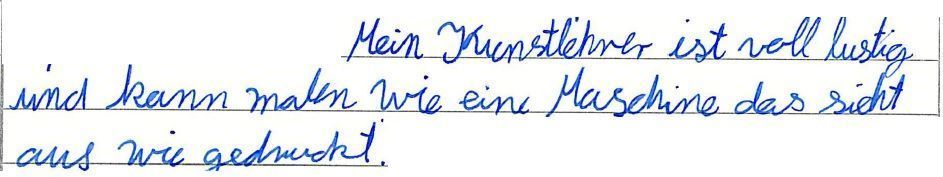 Mein Kunstlehrer ist voll lustig
und kann malen wie eine Maschine das sieht
aus wie gedruckt.